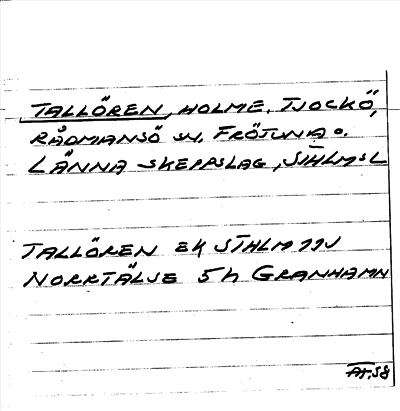 TALLÖREN, HOLME, TJOCKÖ,
RÅDMANSÖ SN, FRÖTUNA O.
LÄNNA SKEPPSLAG, STHLMSL
TALLÖREN EK STHLM
NORRTÄLJE 5h GRANHAMN